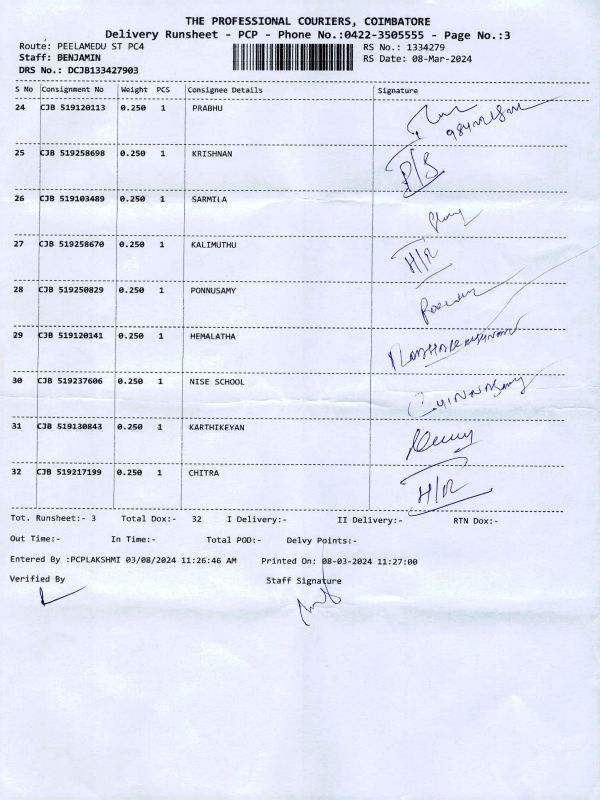 THE PROFESSIONAL COURIERS, COIMBATORE
Delivery Runsheet - PCP - Phone No.:0422-3505555 - Page No.:3
Route: PEELAMEDU ST PC4 RS No.: 1334279
Staff: BENJAMIN RS Date: 08-Mar-2024
DRS No.: DCJB133427903
S No Consignment No Weight PCS Consignee Details Signature
24 CJB 519120113 0.250 1 PRABHU
25 CJB 519258698 0.250 1 KRISHNAN
26 CJB 519103489 0.250 1 SARMILA
27 CJB 519258670 0.250 1 KALIMUTHU H/R
28 CJB 519250829 0.250 1 PONNUSAMY
29 CJB 519120141 0.250 1 HEMALATHA
30 CJB 519237606 0.250 1 NISE SCHOOL
31 CJB 519130843 0.250 1 KARTHIKEYAN
32 CJB 519217199 0.250 1 CHITRA H/R
Tot. Runsheet:- 3 Total Dox:- 32 I Delivery:- II Delivery:- RTN Dox:-
Out Time:- In Time:- Total POD:- Delvy Points:-
Entered By :PCPLAKSHMI 03/08/2024 11:26:46 AM Printed On: 08-03-2024 11:27:00
Verified By Staff Signature